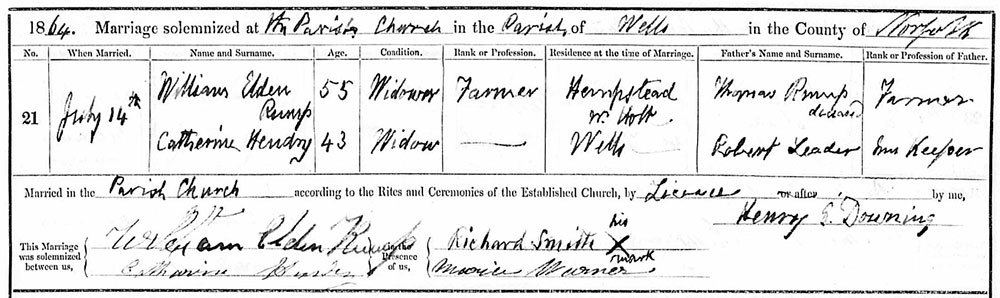 1864. Marriage solemnized at the Parish Church in the Parish of Wells in the County of Norfolk
No. When Married. Name and Surname. Age. Condition. Rank or Profession. Residence at the time of Marriage. Father's Name and Surname. Rank or Profession of Father.
21 July 14th William Elden Rump 55 Widower Farmer Hempstead nr Holt Thomas Rump deceased Farmer
Catherine Hendry 43 Widow — Wells Robert Leader Inn Keeper
Married in the Parish Church according to the Rites and Ceremonies of the Established Church, by Licence or after by me,
Henry E. Downing
This Marriage was solemnized between us, William Elden Rump Presence of us, Richard Smith his X mark
Catharine Hendry Warner